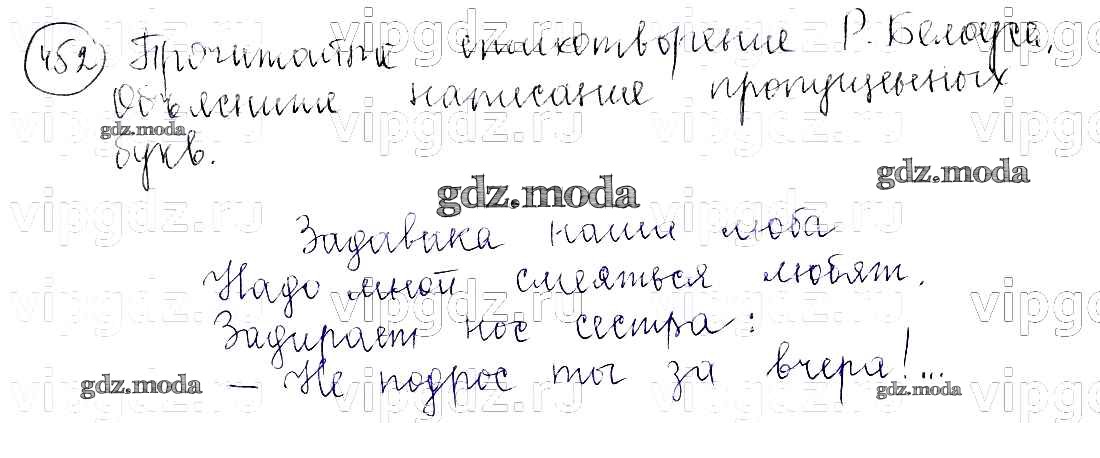 452 Прочитайте стихотворение Р. Белоуса,
Объясните написание пропущенных
gdz.moda
букв.
gdz.moda
gdz.moda
Задавака наша Люба
Надо мной смеяться любят.
Задирает нос сестра:
– Не подрос ты за вчера!...
gdz.moda
gdz.moda
vipgdz.ru